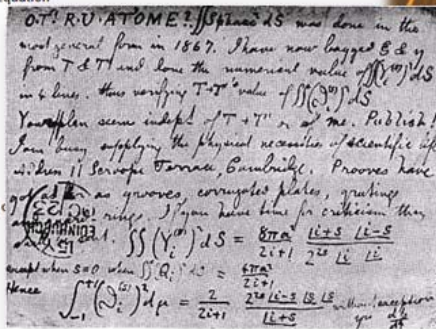 quation
O.T! R.U. AT 'OME? ∬Spharc² dS was done in the
most general form in 1867. I have now bagged ξ & η
from T & T' and done the numerical value of ∬(Yᵢ⁽ˢ⁾)² dS
in 4 lines. thus verifying T+T's value of ∬(ϑᵢ⁽ˢ⁾)² dS
Your plan seems indept of T + T' or of me. Publish!
I am busy supplying the physical necessities of scientific life
address 11 Scroope Terrace, Cambridge. Prooves have
as grooves, corrugated plates, gratings
rings. If you have time for criticism then
out. ∬(Yᵢ⁽ˢ⁾)² dS = 8πa²/(2i+1) · |i+s |i-s / 2²ˢ |i |i
except when s=0 when ∬(Qᵢ)² dS = 4πa²/(2i+1)
Hence ∫₋₁⁺¹ (ϑᵢ⁽ˢ⁾)² dμ = 2/(2i+1) · 2²ˢ |i-s |s |s / |i+s without exception
yrs dp/dt